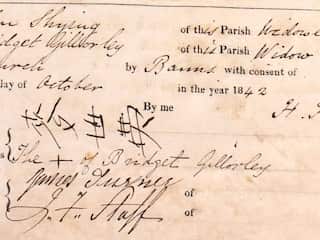 hn Shying of this Parish Widowe
idget Gillorley of this Parish Widow
urch by Banns with consent of
day of October in the year 1842
By me H. T
The + of Bridget Gillorley
James Turner of
J. F. Staff of